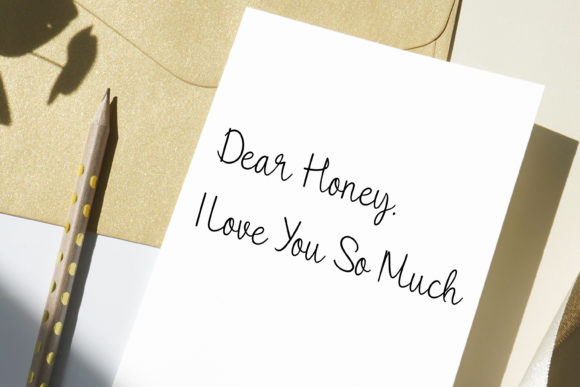 Dear Honey.
I Love You So Much